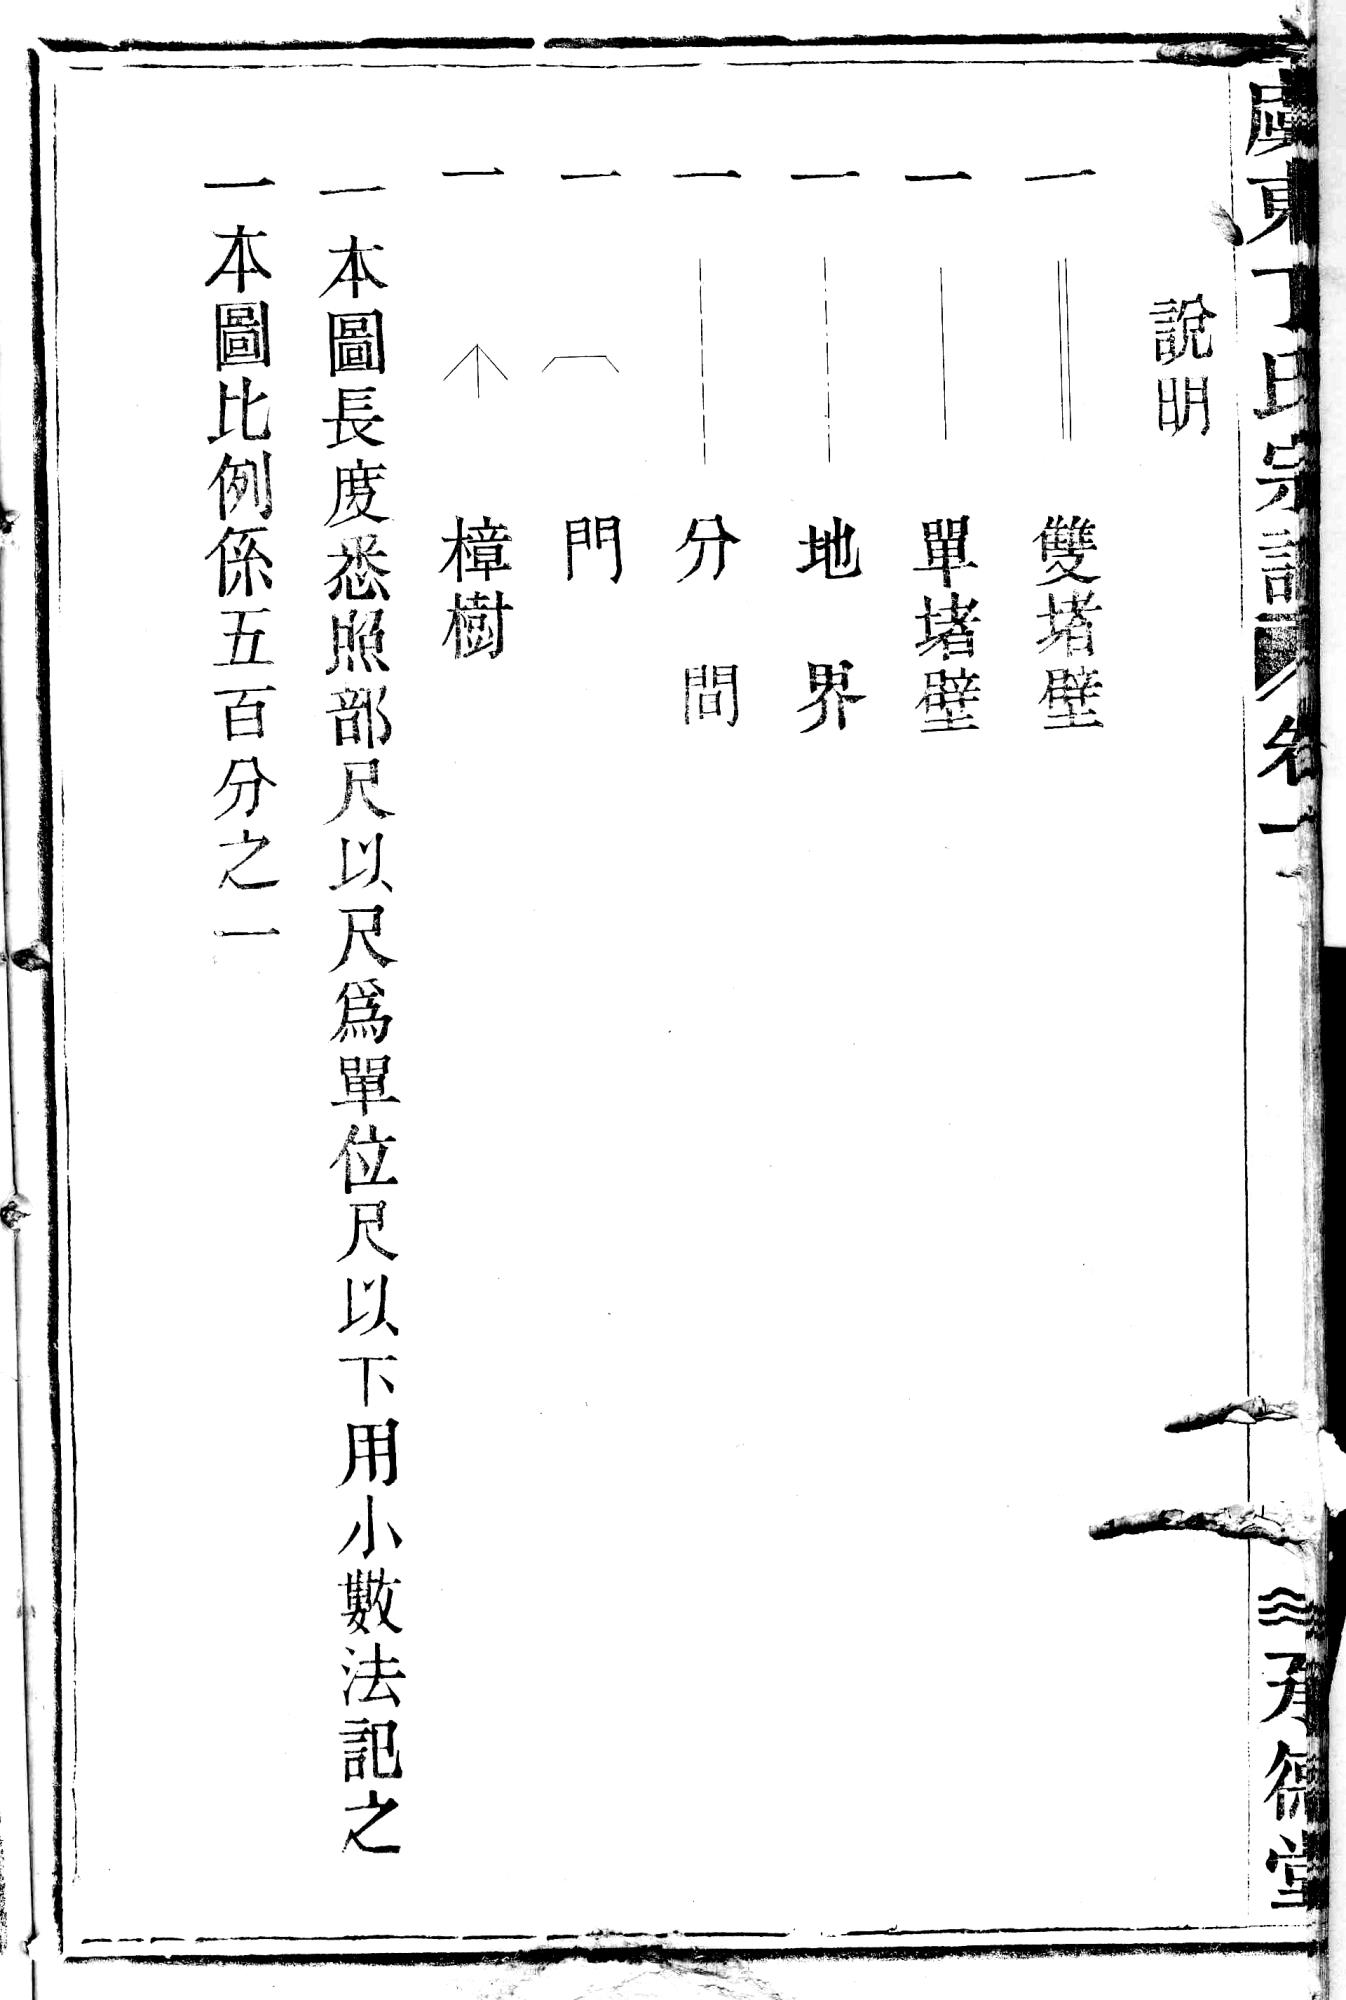 說明
一 雙堵壁
一 單堵壁
一 地界
一 分間
一 門
一 樟樹
一本圖長度悉照部尺以尺爲單位尺以下用小數法記之
一本圖比例係五百分之一
東丁氏宗譜 卷一
承德堂